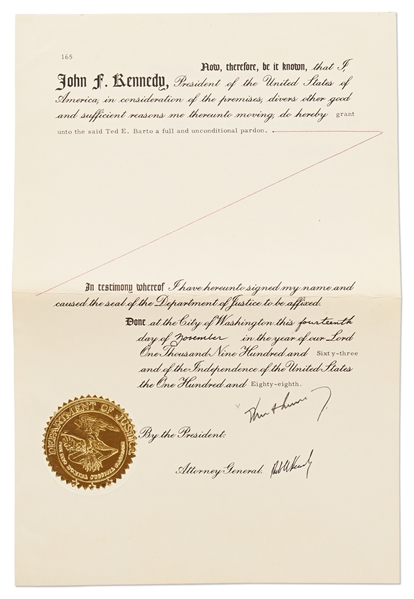 168
Now, therefore, be it known, that I,
John F. Kennedy, President of the United States of
America, in consideration of the premises, divers other good
and sufficient reasons me thereunto moving, do hereby grant
unto the said Ted E. Barto a full and unconditional pardon.
In testimony whereof I have hereunto signed my name and
caused the seal of the Department of Justice to be affixed.
Done at the City of Washington this fourteenth
day of November in the year of our Lord
One Thousand Nine Hundred and Sixty-three
and of the Independence of the United States
the One Hundred and Eighty-eighth.
By the President:
Attorney General.
DEPARTMENT OF JUSTICE